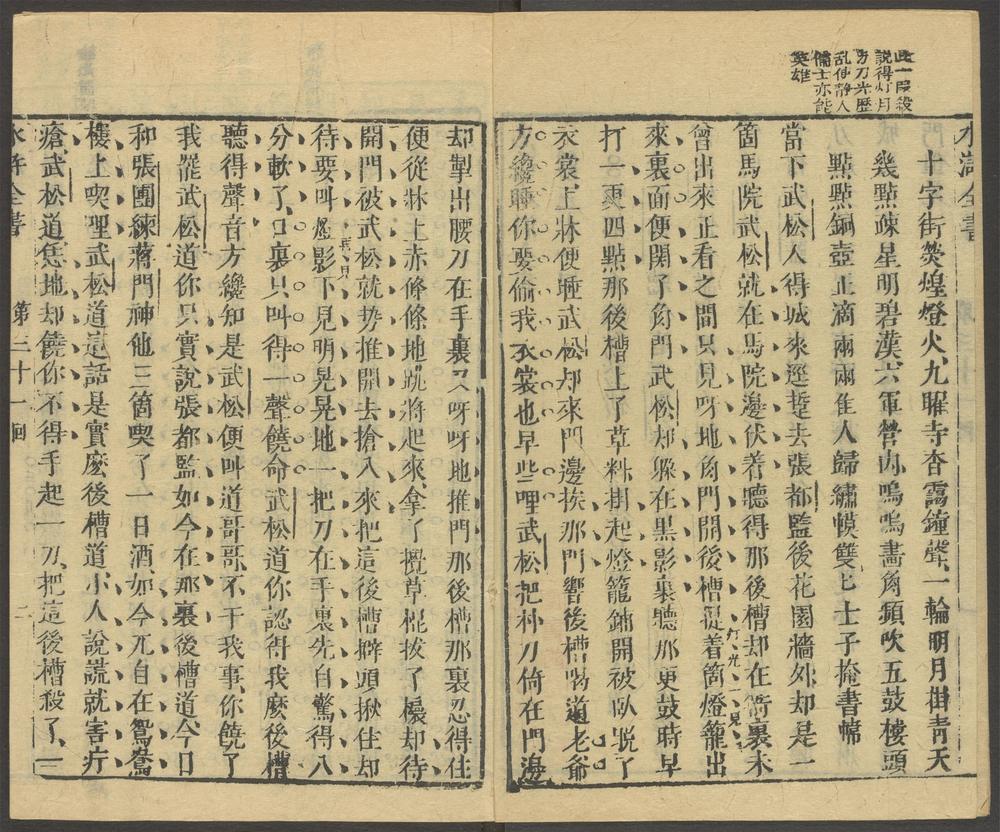 此一段殺
說得灯月
刀光歷
乱使静人
儒士亦能
英雄
水滸全書
十字街熒煌燈火九曜寺杳靄鐘聲一輪明月掛青天
幾點疎星明碧漢六軍營內嗚嗚畫角頻吹五鼓樓頭
點點銅壺正滴兩兩佳人歸繡幙雙七士子掩書幃
當下武松入得城來逕踅去張都監後花園牆外却是一
箇馬院武松就在馬院邊伏着聽得那後槽却在衙裏未
曾出來正看之間只見呀地角門開後槽提着箇燈籠出
灯光一見
來裏面便関了角門武松却躲在黒影裏聽那更鼓時早
打一更四點那後槽上了草料掛起燈籠鋪開被臥脫了
衣裳上牀便睡武松却來門邊挨那門響後槽喝道老爺
方纔睡你要偷我衣裳也早些哩武松把朴刀倚在門邊
却掣出腰刀在手裏又呀呀地推門那後槽那裏忍得住
便從牀上赤條條地跳將起來拿了攪草棍拔了櫎却待
開門被武松就势推開去搶入來把這後槽擗頭揪住却
待要叫燈影下見明晃晃地一把刀在手裏先自驚得八
分軟了口裏只叫得一聲饒命武松道你認得我麽後槽
聽得聲音方纔知是武松便叫道哥哥不干我事你饒了
我罷武松道你只實說張都監如今在那裏後槽道今日
和張團練蔣門神他三箇喫了一日酒如今兀自在鴛鴦
樓上喫哩武松道這話是實麽後槽道小人說謊就害疔
瘡武松道恁地却饒你不得手起一刀把這後槽殺了一
水滸全書
第三十一囘
二